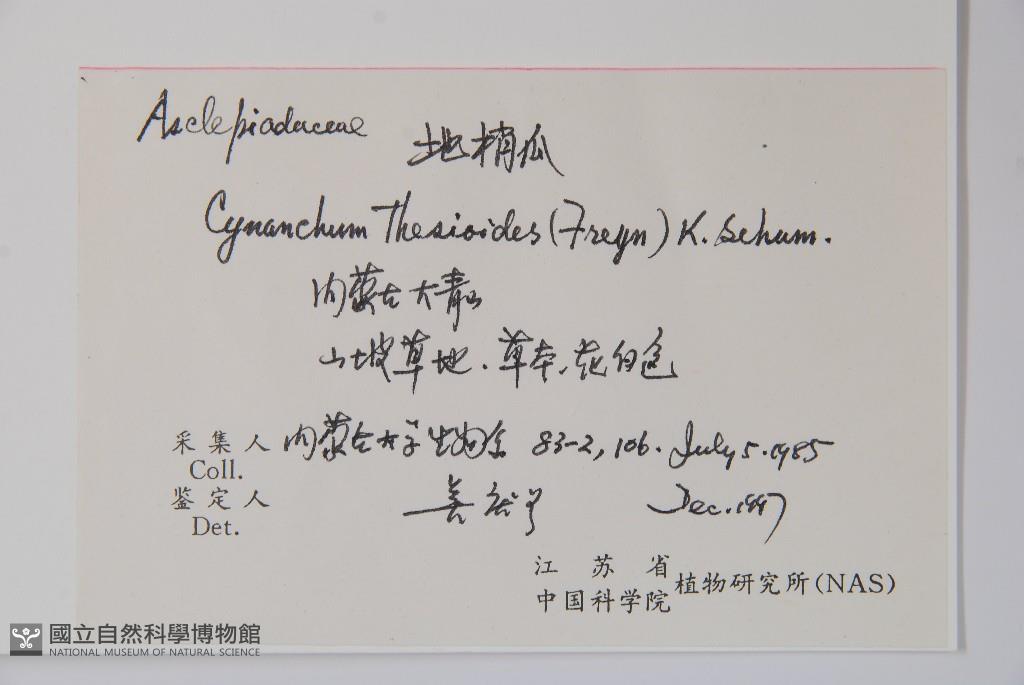 Asclepiadaceae
地梢瓜
Cynanchum Thesioides (Freyn) K. Schum.
内蒙古大青山
山坡草地.草本,花白色
采集人 内蒙古大学生物系 83-2, 106. July 5. 1985
Coll.
鉴定人 Dec. 1997
Det.
江苏省
中国科学院 植物研究所(NAS)
國立自然科學博物館
NATIONAL MUSEUM OF NATURAL SCIENCE